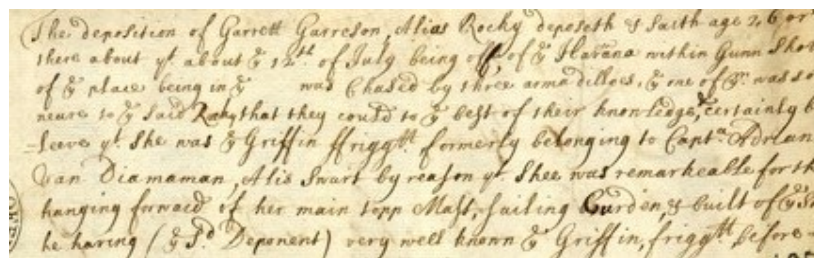 The deposition of Garrett Garreson, Alias Rocky deposeth & saith age 26 or
there about yt. about ye 12th of July being off, of ye Havana within Gunn Shot
of ye place being in ye was Chased by three armadilloes, ye one of ym. was so
neare to ye said Rocky that they could to ye best of their knowledge, certainly b
=leeve yt. She was ye Griffin ffriggtt formerly belonging to Capta. Adrian
Van Diamaman, Alis Swart by reason yt Shee was remarkeable for th
hanging forward of her main topp Mast, sailing Burden, & built of ye
he having (ye Sd. Deponent) very well known ye Griffin, friggtt. before-